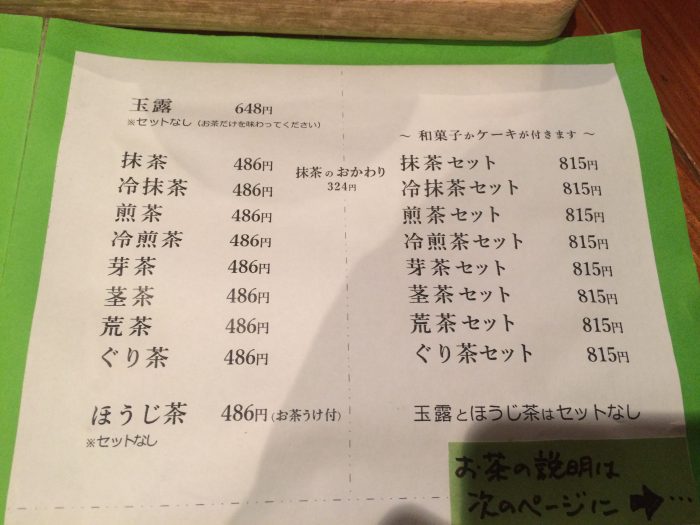 玉露 648円
※セットなし（お茶だけを味わってください）
抹茶 486円
冷抹茶 486円
煎茶 486円
冷煎茶 486円
芽茶 486円
茎茶 486円
荒茶 486円
ぐり茶 486円
抹茶のおかわり
324円
ほうじ茶 486円（お茶うけ付）
※セットなし
～ 和菓子かケーキが付きます ～
抹茶セット 815円
冷抹茶セット 815円
煎茶セット 815円
冷煎茶セット 815円
芽茶セット 815円
茎茶セット 815円
荒茶セット 815円
ぐり茶セット 815円
玉露とほうじ茶はセットなし
お茶の説明は
次のページに ➡…